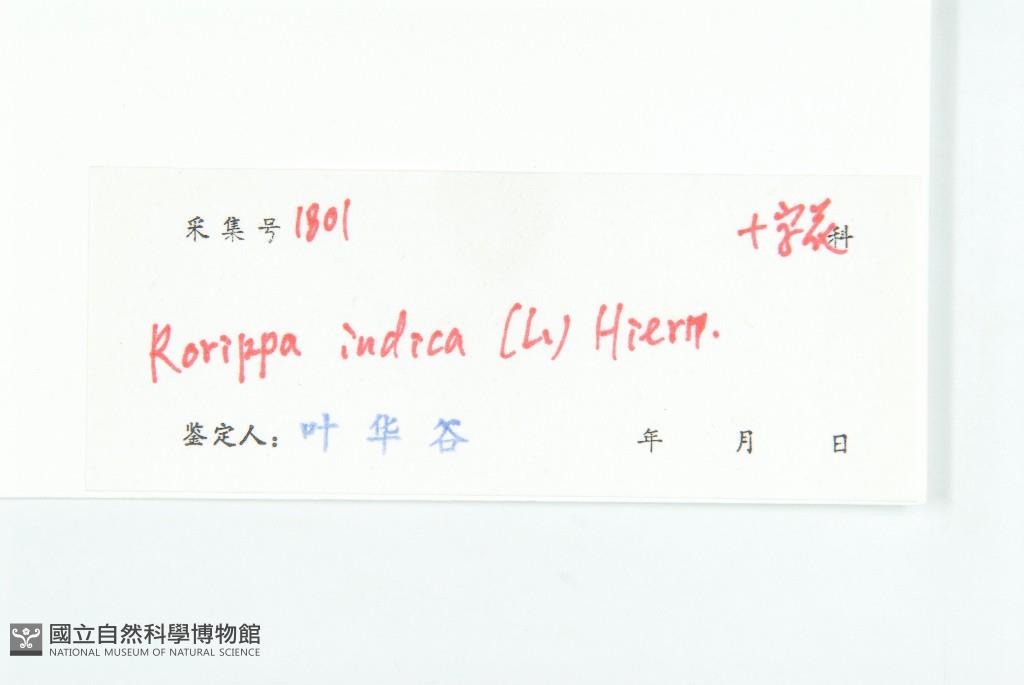 采集号 1801 十字花科
Rorippa indica (L.) Hiern.
鉴定人：叶华谷 年 月 日
國立自然科學博物館
NATIONAL MUSEUM OF NATURAL SCIENCE